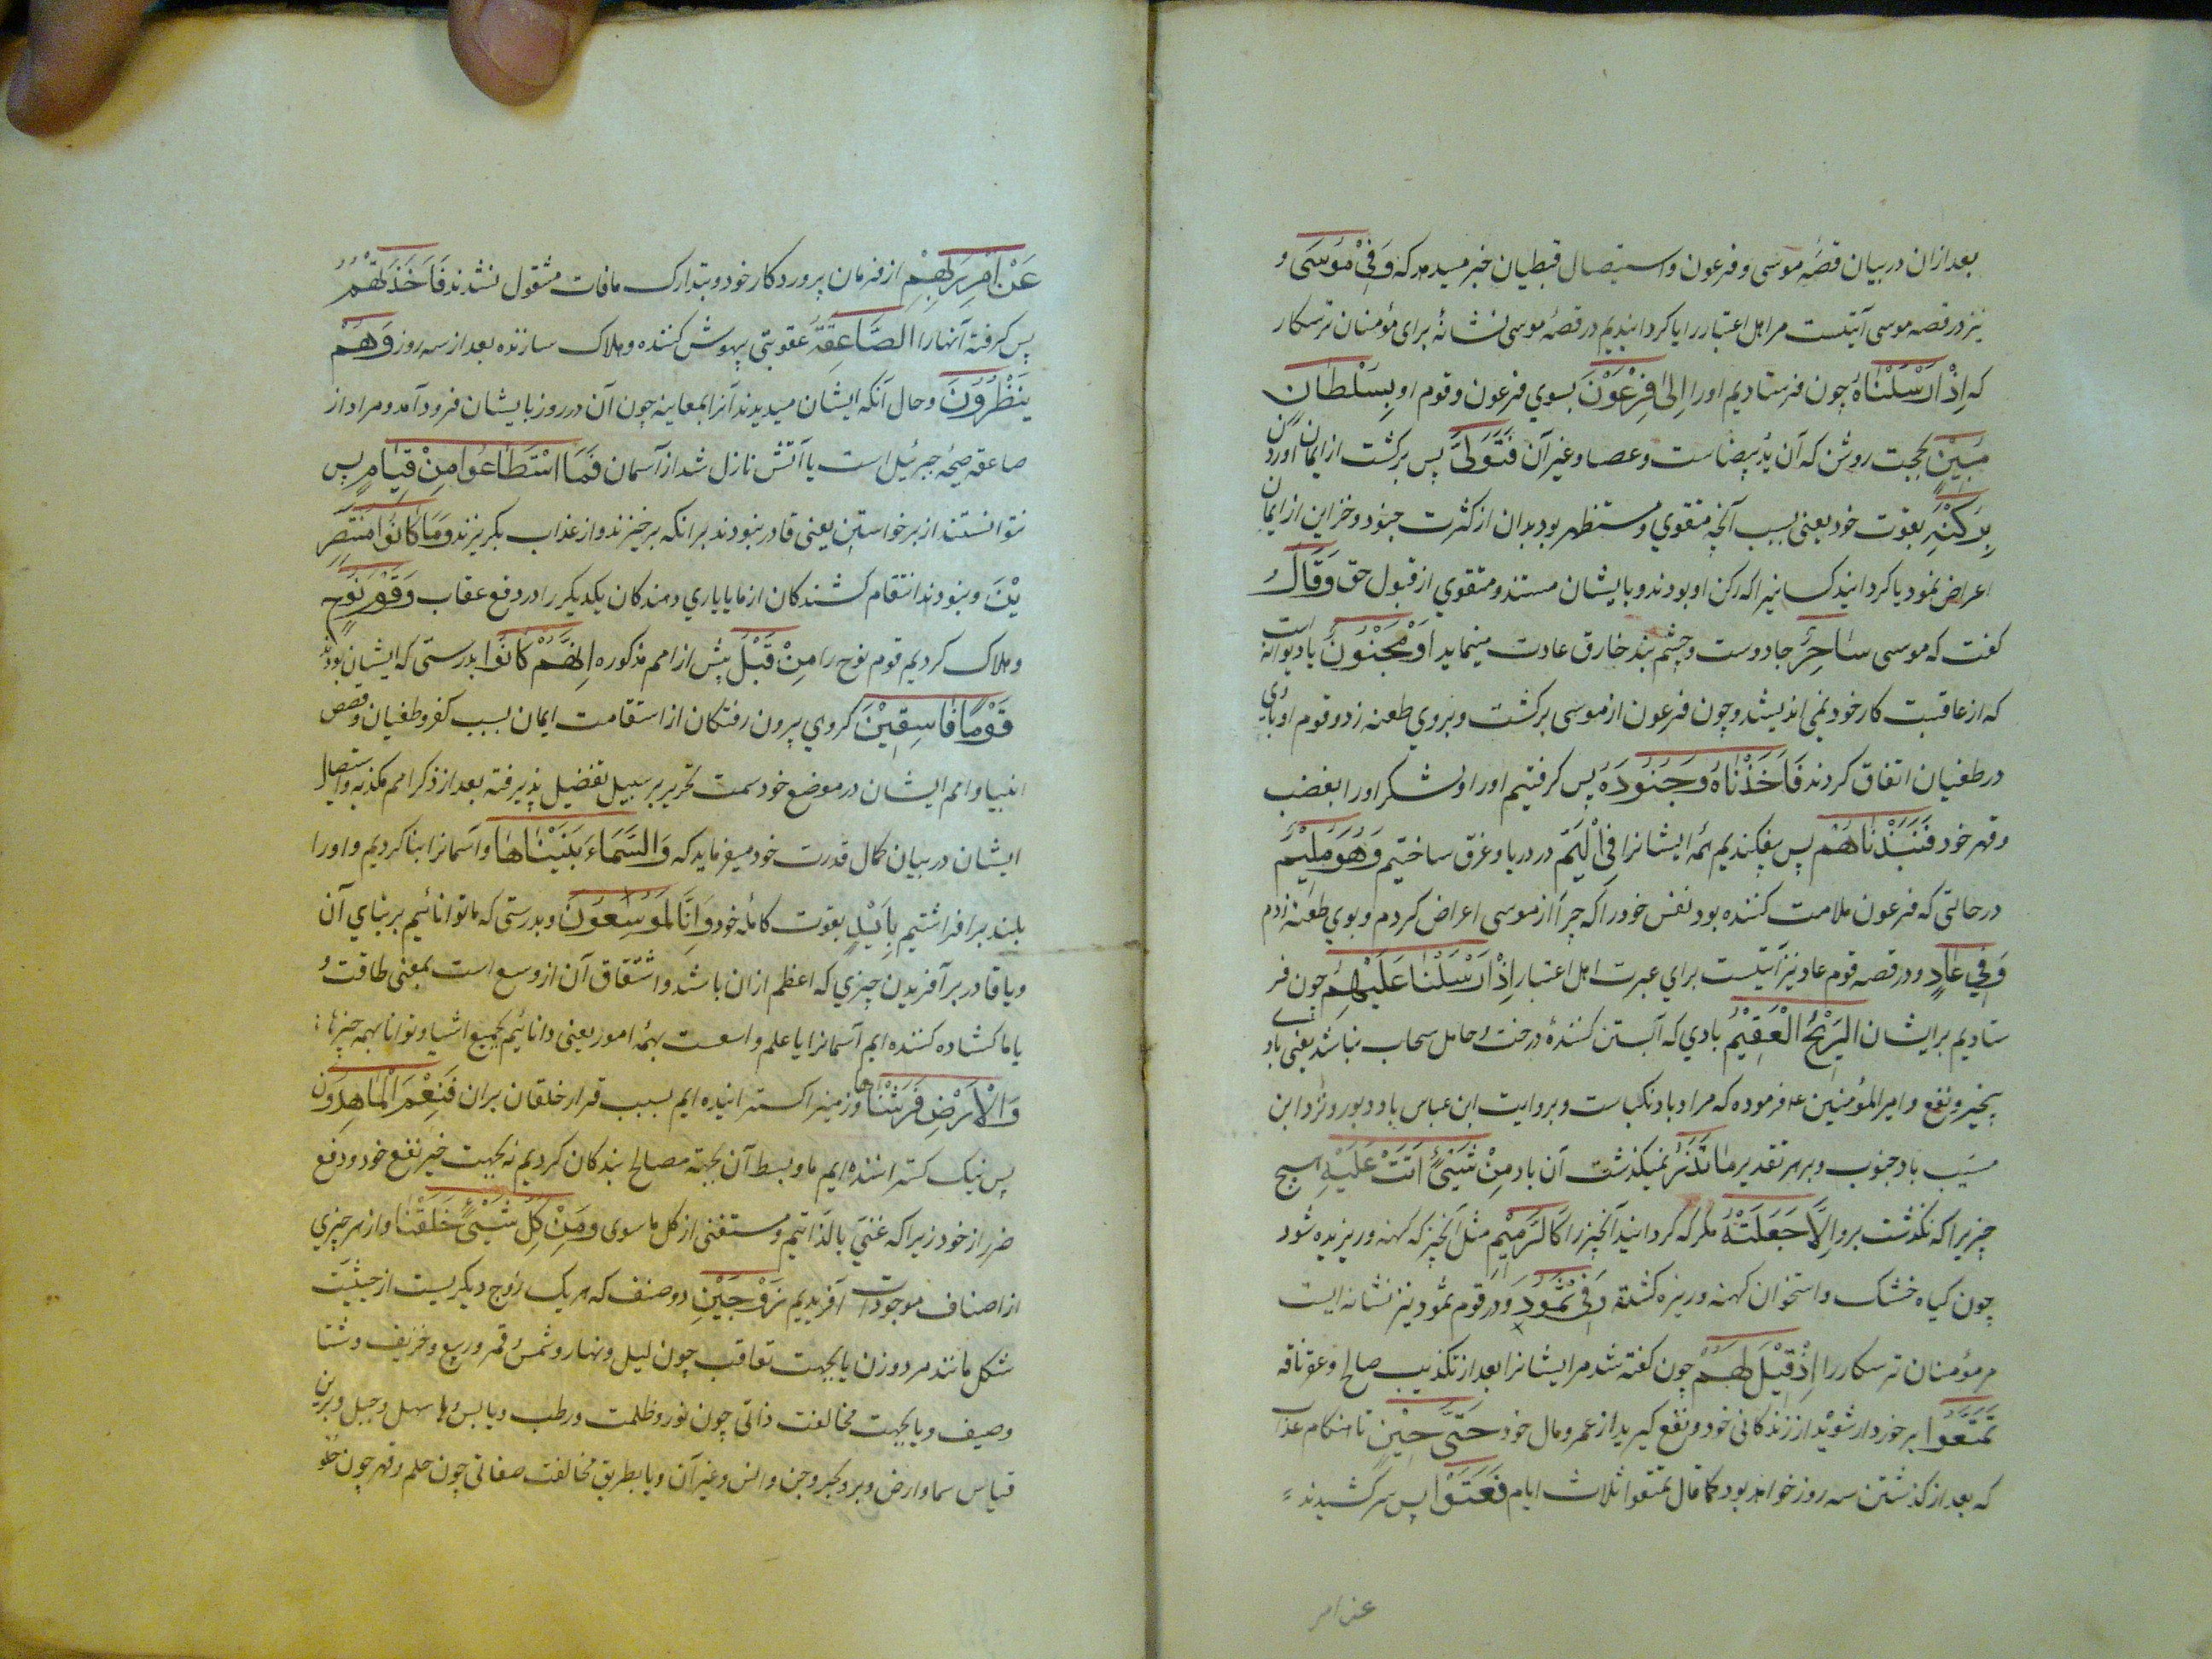 بعد ازان در بیان قصه موسی و فرعون و استیصال قبطیان خبر میدهد که وَفِي مُوسَى و
نیز در قصه موسی آیتست مر اهل اعتبار را یا کردانیدیم در قصه موسی نشانهٔ برای مؤمنان ترسکار
که اِذْ اَرْسَلْنَاهُ چون فرستادیم او را اِلَى فِرْعَوْنَ بسوي فرعون و قوم او بِسُلْطَانٍ
مُبِيْنٍ بحجت روشن که آن ید بیضاست و عصا و غیر آن فَتَوَلَّى پس برکشت از ایمان آوردن
بِرُكْنِهِ بقوت خود یعنی بسبب آنچه متقوي و مستظهر بود بدان از کثرت جنود و خزاین از ایمان
اعراض نمود یا کردانید کسانیرا که رکن او بودند و بایشان مستند و متقوي از قبول حق وَقَالَ
کفت که موسی سَاحِرٌ جادوست و چشم بند خارق عادت مینماید اَوْ مَجْنُوْنٌ یا دیوانه است
که از عاقبت کار خود نمی اندیشد و چون فرعون از موسی برکشت و بروي طعنه زد و قوم او با وي
در طغیان اتفاق کردند فَاَخَذْنَاهُ وَجُنُوْدَهُ پس کرفتیم او را و لشکر او را بغضب
و قهر خود فَنَبَذْنَاهُمْ پس بفکندیم همه ایشانرا فِي الْيَمِّ در دریا و غرق ساختیم وَهُوَ مُلِيْمٌ
در حالتي که فرعون ملامت کننده بود نفس خود را که چرا از موسی اعراض کردم و بوي طعنه زدم
وَفِي عَادٍ و در قصه قوم عاد نیز آیتست براي عبرت اهل اعتبار اِذْ اَرْسَلْنَا عَلَيْهِمُ چون فر
ستادیم بر ایشان الرِّيْحَ الْعَقِيْمَ بادي که آبستن کنندهٔ درخت و حامل سحاب نباشد یعنی بادي
بیخیر و نفع و امیر المؤمنین ع فرموده که مراد باد نکباست و بروایت ابن عباس باد دبور و نزد ابن
مسیب باد جنوب و بر هر تقدیر مَا تَذَرُ نمیکذشت آن باد مِنْ شَيْئٍ اَتَتْ عَلَيْهِ هیچ
چیزیرا که نکذشت برو اِلَّا جَعَلَتْهُ مکر که کردانید آنچیز را كَالرَّمِيْمِ مثل آنچیز که کهنه و ریزیده شود
چون کیاه خشک و استخوان کهنه و ریزه کشته وَفِي ثَمُوْدَ و در قوم ثمود نیز نشانه ایست
مر مؤمنان ترسکار را اِذْ قِيْلَ لَهُمْ چون کفته شد مر ایشانرا بعد از تکذیب صالح و عقر ناقه
تَمَتَّعُوْا برخوردار شوید از زندکانی خود و نفع کیرید از عمر و مال خود حَتَّى حِيْنٍ تا هنکام عذاب
که بعد از کذشتن سه روز خواهد بود کما قال تمتعوا ثلاث ایام فَعَتَوْا پس سرکشیدند
عن امر
عَنْ اَمْرِ رَبِّهِمْ از فرمان پروردکار خود و بتدارک مافات مشغول نشدند فَاَخَذَتْهُمُ
پس کرفت آنها را الصَّاعِقَةُ عقوبتی بیهوش کننده و هلاک سازنده بعد از سه روز وَهُمْ
يَنْظُرُوْنَ و حال آنکه ایشان میدیدند آنرا بمعاینه چون آن در روز بایشان فرود آمد و مراد از
صاعقه صیحهٔ جبرئیل است یا آتش نازل شد از آسمان فَمَا اسْتَطَاعُوا مِنْ قِيَامٍ پس
نتوانستند از برخواستن یعنی قادر نبودند بر انکه برخیزند و از عذاب بکریزند وَمَا كَانُوْا مُنْتَصِرِ
يْنَ و نبودند انتقام کشندکان از ما یا یاري دهندکان یکدیکر را در دفع عقاب وَقَوْمَ نُوْحٍ
و هلاک کردیم قوم نوح را مِنْ قَبْلُ پیش از امم مذکوره اِنَّهُمْ كَانُوْا بدرستی که ایشان بودند
قَوْمًا فَاسِقِيْنَ کروهي بیرون رفتکان از استقامت ایمان بسبب کفر و طغیان و قصص
انبیا و امم ایشان در موضع خود سمت تحریر بر سبیل تفضیل پذیرفته بعد از ذکر امم مکذبه و استیصال
ایشان در بیان کمال قدرت خود میفرماید که وَالسَّمَاءَ بَنَيْنَاهَا و آسمانرا بنا کردیم و او را
بلند بر افراشتیم بِاَيْدٍ بقوت کامله خود وَاِنَّا لَمُوْسِعُوْنَ و بدرستی که ما توانائیم بر بناي آن
و یا قادر بر آفریدن چیزي که اعظم ازان باشد و اشتقاق آن از وسع است بمعنی طاقت و
یا ما کشاده کننده ایم آسمانرا یا علم واسعت بهمهٔ امور یعنی دانائیم بجمیع اشیا و توانا بهمه چیزها
وَالْاَرْضَ فَرَشْنَاهَا و زمینرا کسترانیده ایم بسبب قرار خلقان بران فَنِعْمَ الْمَاهِدُوْنَ
پس نیک کسترانندهٔ ایم ما و بسط آن بجهته مصالح بندکان کردیم نه بجهت خیر نفع خود و دفع
ضرر از خود زیرا که غنيّ بالذاتیم و مستغنی از کل ما سوی وَمِنْ كُلِّ شَيْئٍ خَلَقْنَا و از هر چیزي
از اصناف موجودات آفریدیم زَوْجَيْنِ دو صنف که هر یک زوج دیکریست از حیثیت
شکل مانند مرد و زن یا بجهت تعاقب چون لیل و نهار و شمس و قمر و ربیع و خریف و شتا
و صیف و یا بجهت مخالفت ذاتی چون نور و ظلمت و رطب و یابس و سهل و جبل و برین
قیاس سما و ارض و بر و بحر و جن و انس و غیر آن و یا بطریق مخالفت صفاتی چون حلم و قهر چون